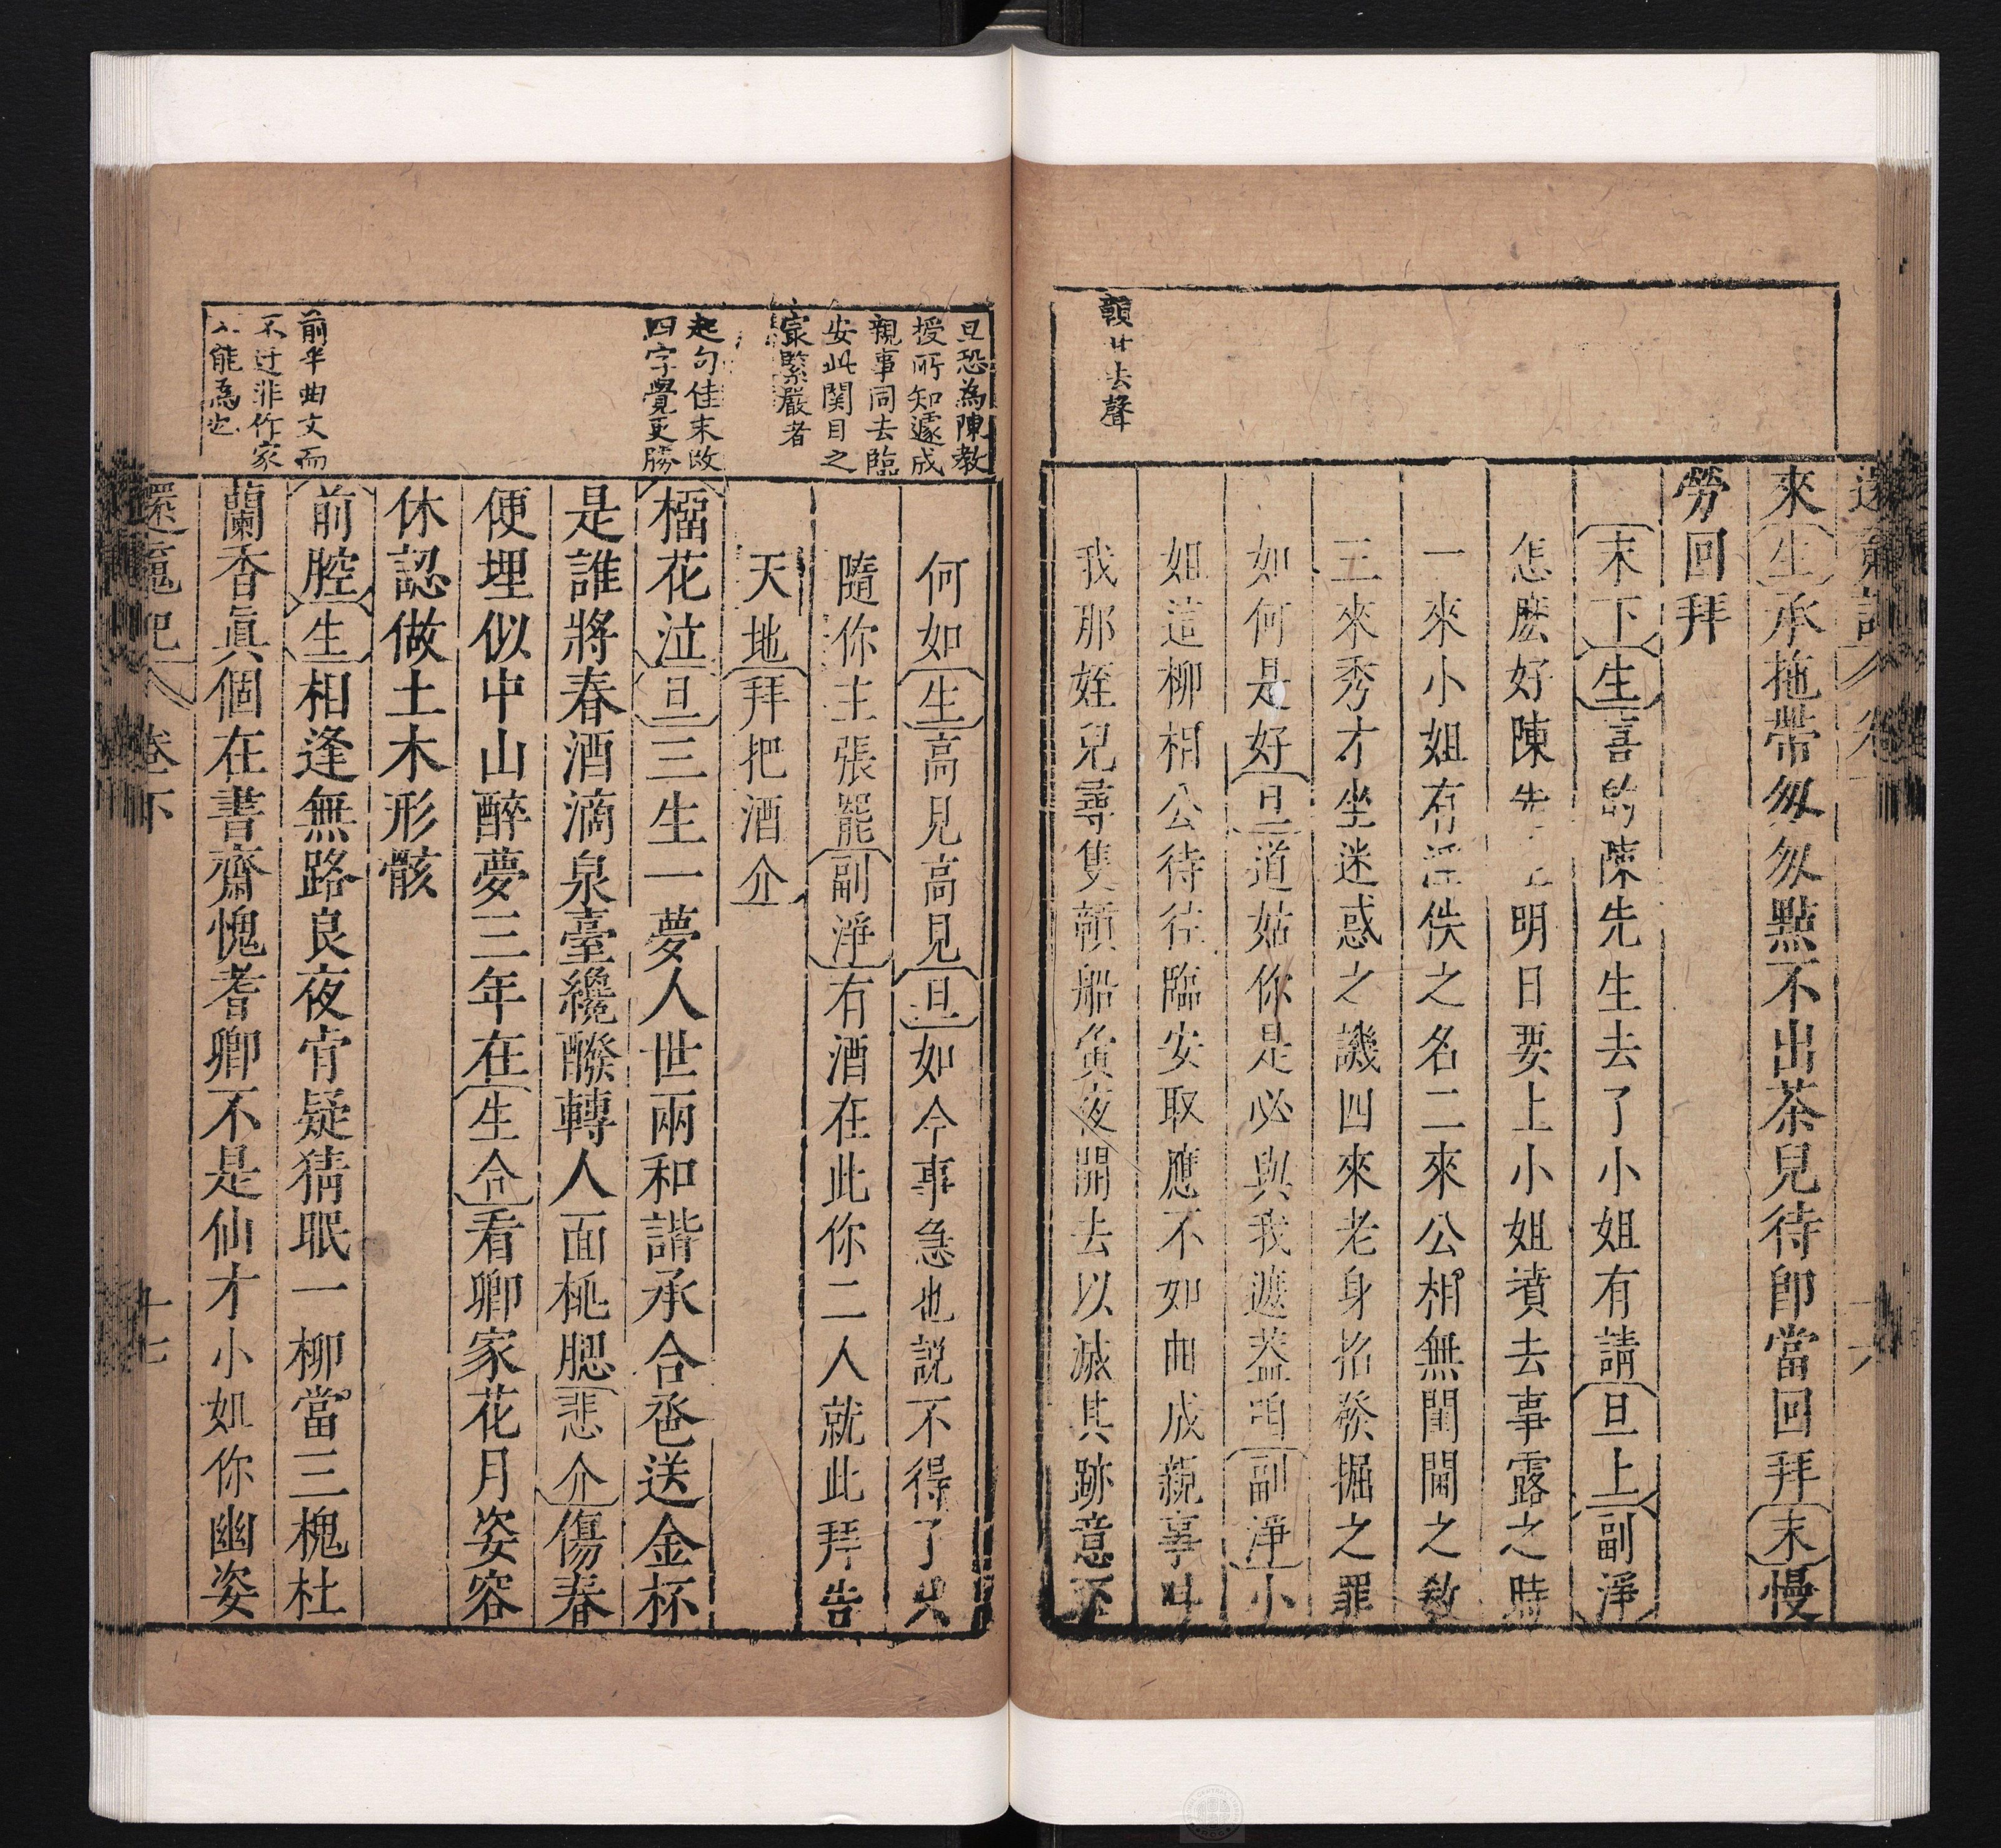 還魂記
卷下
十六
贑廿去聲
來生承拖帶匆匆點不出茶兒待即當回拜末慢
勞回拜
末下生喜的陳先生去了小姐有請旦上副淨
怎麽好陳先生明日要上小姐墳去事露之時
一來小姐有淫佚之名二來公相無閨閫之教
三來秀才坐迷惑之譏四來老身招發掘之罪
如何是好旦道姑你是必與我遮葢咱副淨小
姐這柳相公待往臨安取應不如曲成親事叫
我那姪兒尋隻贑船夤夜開去以滅其跡意下
旦恐為陳教
授所知遽成
親事同去臨
安此関目之
最緊嚴者
起句佳末改
四字覺更勝
前半曲文而
不迂非作家
不能為也
何如生高見高見旦如今事急也説不得了只
隨你主張罷副淨有酒在此你二人就此拜告
天地拜把酒介
榴花泣旦三生一夢人世兩和諧承合巹送金杯
是誰將春酒滴泉臺纔醱轉人面桃腮悲介傷春
便埋似中山醉夢三年在生合看卿家花月姿容
休認做土木形骸
前腔生相逢無路良夜肯疑猜眠一柳當三槐杜
蘭香眞個在書齋愧耆卿不是仙才小姐你幽姿
還魂記
卷下
十七